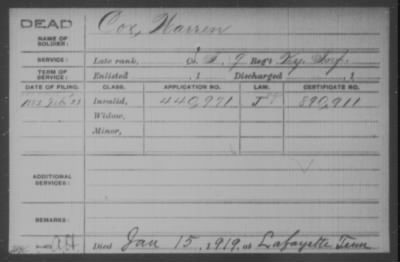 DEAD
NAME OF SOLDIER: Cox, Warren
SERVICE: Late rank, Reg't Ky. Inf.
TERM OF SERVICE: Enlisted , 1 Discharged , 1
DATE OF FILING. CLASS. APPLICATION NO. LAW. CERTIFICATE NO.
Invalid, 440,971 890,911
Widow,
Minor,
ADDITIONAL SERVICES:
REMARKS:
Died Jan 15, 1919, at Lafayette Tenn